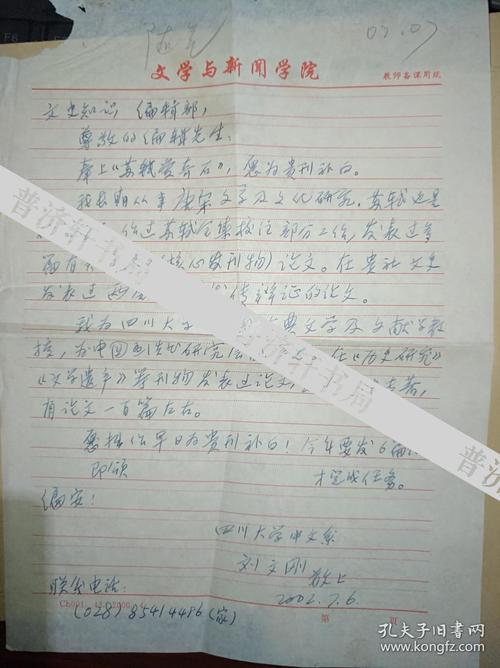 随笔
07.07
文学与新闻学院
教师备课用纸
文史知识 编辑部,
尊敬的编辑先生:
奉上《苏轼爱奇石》,愿为贵刊补白。
我长期从事唐宋文学及文化研究,苏轼也是
作过苏轼全集校注部分工作,发表过多
篇有 (核心类刊物)论文。在贵社文史
发表过两 传辩证的论文。
我为四川大学 典文学及文献学教
授,为中国 研究会 在《历史研究》
《文学遗产》等刊物发表过论文, 专著,
有论文一百篇左右。
愿拙作早日为贵刊补白!今年要发6篇
才完成任务。
即颂
编安!
四川大学中文系
刘文刚
敬上
2002.7.6.
联系电话:
(028)85414486(家)
Ch001
2000
第 页
普济轩书局
普济轩书局
普济轩书局
孔夫子旧书网
www.kongfz.com